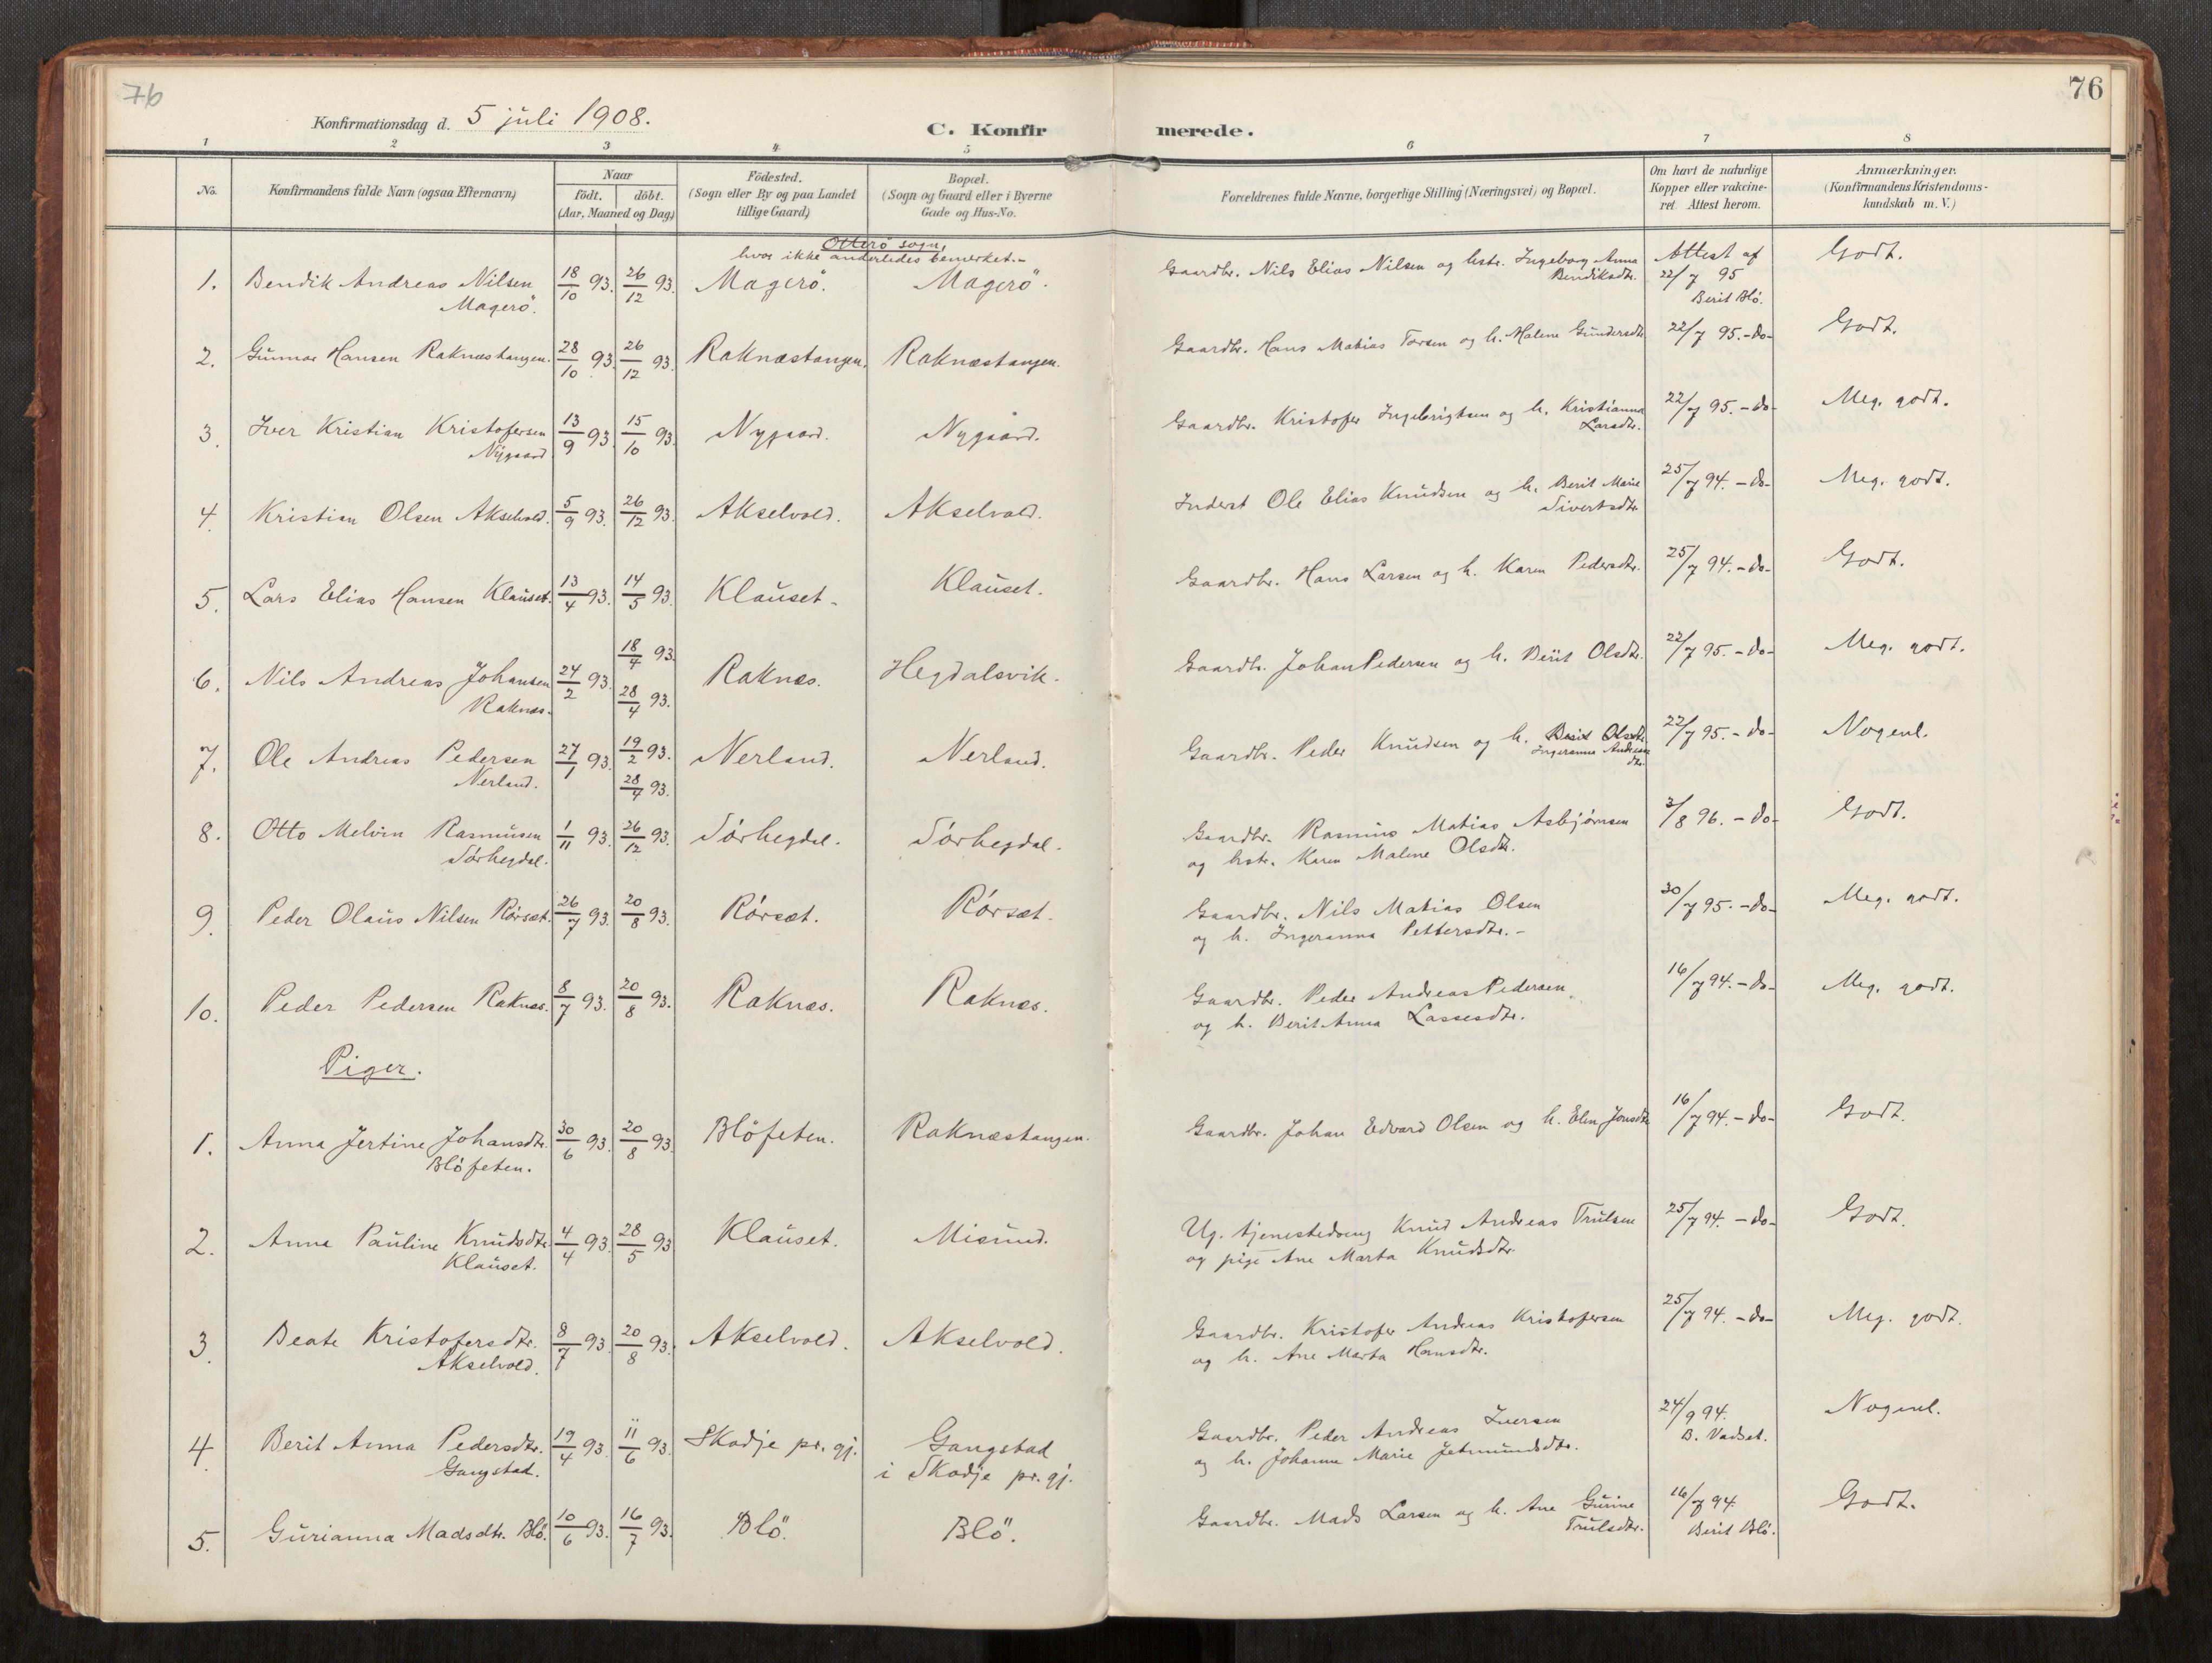 76
76
Konfirmationsdag d. 5 juli 1908.
C. Konfir merede.
1 2 3 4 5 6 7 8
No.
Konfirmandens fulde Navn (ogsaa Efternavn)
Naar
födt, döbt.
(Aar, Maaned og Dag)
Födested.
(Sogn eller By og paa Landet
tillige Gaard)
Bopæl.
(Sogn og Gaard eller i Byerne
Gade og Hus-No.
Forældrenes fulde Navne, borgerlige Stilling (Næringsvei) og Bopæl.
Om havt de naturlige
Kopper eller vakcine-
ret. Attest herom.
Anmærkninger.
(Konfirmandens Kristendoms-
kundskab m. V.)
Otterö sogn,
hvor ikke anderledes bemerket.-
1. Bendik Andreas Nilsen 18/10 93. 26/12 93. Magerö. Magerö. Gaardbr. Nils Elias Nilsen og hstr. Ingeborg Anna Attest af Godt.
Magerö. Bendiksdtr. 22/7 95
Berit Blö.
2. Gunnar Hansen Raknæstangen. 28/10 93. 26/12 93. Raknæstangen. Raknæstangen. Gaardbr. Hans Matias Torsen og h. Malene Gundersdtr. 22/7 95.-do- Godt.
3. Iver Kristian Kristofersen 13/9 93. 15/10 93. Nygaard. Nygaard. Gaardbr. Kristofer Ingebrigtsen og h. Kristianna 22/7 95.-do- Meg. godt.
Nygaard Larsdtr.
4. Kristian Olsen Akselvold. 5/9 93. 26/12 93. Akselvold. Akselvold. Inderst Ole Elias Knudsen og h. Berit Marie 25/7 94.-do- Meg. godt.
Sivertsdtr.
5. Lars Elias Hansen Klauset. 13/4 93. 14/5 93. Klauset. Klauset. Gaardbr. Hans Larsen og h. Karen Pedersdtr. 25/7 94.-do- Godt.
6. Nils Andreas Johansen 24/2 93. 18/4 93. Raknes. Hegdalsvik. Gaardb. Johan Pedersen og h. Berit Olsdtr. 22/7 95.-do- Meg. godt.
Raknes. 28/4 93.
7. Ole Andreas Pedersen 27/1 93. 19/2 93. Nerland. Nerland. Gaardbr. Peder Knudsen og h. Berit Olsdtr. 22/7 95.-do- Nogenl.
Nerland. 28/4 93. Ingeranna Andreas
dtr.
8. Otto Melvin Rasmusen 1/11 93. 26/12 93. Sörhegdal. Sörhegdal. Gaardbr. Rasmus Matias Asbjørnsen 3/8 96.-do- Godt.
Sörhegdal. og hstr. Karen Malene Olsdtr.
9. Peder Olaus Nilsen Rörsæt. 26/7 93. 20/8 93. Rörsæt. Rörsæt. Gaardbr. Nils Matias Olsen 30/7 95.-do- Meg. godt.
og h. Ingeranna Pettersdtr.-
10. Peder Pedersen Raknæs. 8/7 93. 20/8 93. Raknæs. Raknes. Gaardbr. Peder Andreas Pedersen 16/7 94.-do- Meg. godt.
og h. Berit Anna Lassesdtr.
Piger.
1. Anna Jertine Johansdtr. 30/6 93. 20/8 93. Blöfeten. Raknæstangen. Gaardbr. Johan Edvard Olsen og h. Elen Jonsdtr 16/7 94.-do- Godt.
Blöfeten.
2. Anna Pauline Knudsdtr. 4/4 93. 28/5 93 Klauset. Misund. Ug. tjenestedreng Knud Andreas Trulsen 25/7 94.-do- Godt.
Klauset. og pige Ane Marta Knudsdtr.
3. Beate Kristofersdtr. 8/7 93. 20/8 93. Akselvold. Akselvold. Gaardbr. Kristofer Andreas Kristofersen 25/7 94.-do- Meg. godt.
Akselvold. og h. Ane Marta Hansdtr.
4. Berit Anna Pedersdtr. 19/4 93. 11/6 93. Skodje pr. gj. Gangstad Gaardbr. Peder Andreas Iversen 24/9 94. Nogenl.
Gangstad. i Skodje pr. gj. og h. Johanne Marie Jetmundsdtr. B. Vadset.
5. Gurianna Madsdtr. Blö. 10/6 93. 16/7 93. Blö. Blö. Gaardbr. Mads Larsen og h. Ane Gurine 16/7 94. Godt.
Trulsdtr. Berit Blö.